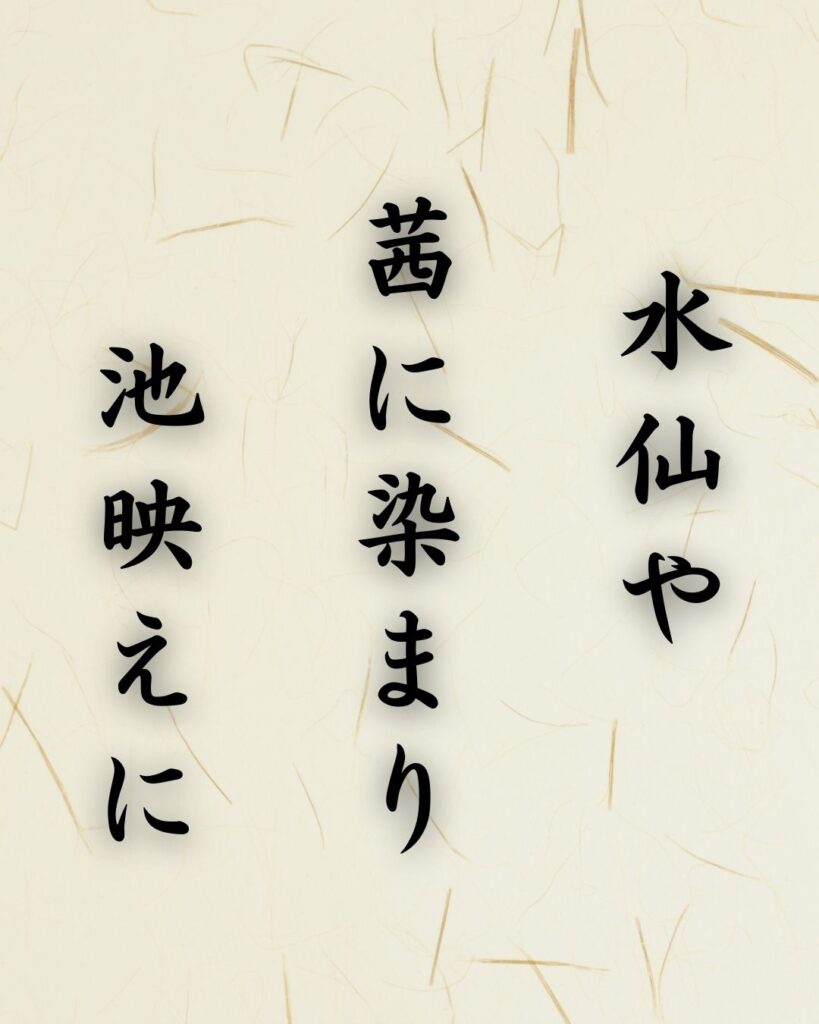 水仙や
茜に染まり
池映えに